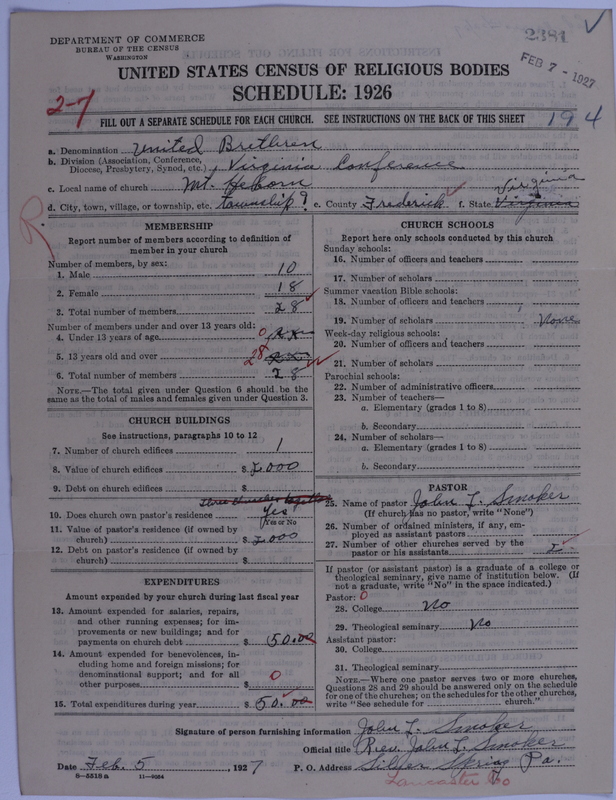 DEPARTMENT OF COMMERCE
BUREAU OF THE CENSUS
WASHINGTON
2381
FEB 7 - 1927
UNITED STATES CENSUS OF RELIGIOUS BODIES
SCHEDULE: 1926
2-7
194
FILL OUT A SEPARATE SCHEDULE FOR EACH CHURCH. SEE INSTRUCTIONS ON THE BACK OF THIS SHEET
a. Denomination United Brethren
b. Division (Association, Conference, Diocese, Presbytery, Synod, etc.) Virginia Conference
c. Local name of church Mt. Hebron
Virginia
d. City, town, village, or township, etc. township? e. County Frederick f. State Virginia
R
MEMBERSHIP
Report number of members according to definition of
member in your church
Number of members, by sex:
1. Male 10
2. Female 18
3. Total number of members 28
Number of members under and over 13 years old:
4. Under 13 years of age 0
5. 13 years old and over 28
6. Total number of members 28
NOTE.—The total given under Question 6 should be the
same as the total of males and females given under Question 3.
CHURCH BUILDINGS
See instructions, paragraphs 10 to 12
7. Number of church edifices 1
8. Value of church edifices $ 2000
9. Debt on church edifices $
10. Does church own pastor's residence Yes
Yes or No
11. Value of pastor's residence (if owned by
church) $ 2000
12. Debt on pastor's residence (if owned by
church) $
EXPENDITURES
Amount expended by your church during last fiscal year
13. Amount expended for salaries, repairs,
and other running expenses; for im-
provements or new buildings; and for
payments on church debt $ 50.00
14. Amount expended for benevolences, in-
cluding home and foreign missions; for
denominational support; and for all
other purposes $ 0
15. Total expenditures during year $ 50.00
CHURCH SCHOOLS
Report here only schools conducted by this church
Sunday schools:
16. Number of officers and teachers
17. Number of scholars
Summer vacation Bible schools:
18. Number of officers and teachers
19. Number of scholars None
Week-day religious schools:
20. Number of officers and teachers
21. Number of scholars
Parochial schools:
22. Number of administrative officers
23. Number of teachers—
a. Elementary (grades 1 to 8)
b. Secondary
24. Number of scholars—
a. Elementary (grades 1 to 8)
b. Secondary
PASTOR
25. Name of pastor John L. Smoker
(If church has no pastor, write "None")
26. Number of ordained ministers, if any, em-
ployed as assistant pastors
27. Number of other churches served by the
pastor or his assistants 2
If pastor (or assistant pastor) is a graduate of a college or
theological seminary, give name of institution below. (If
not a graduate, write "No" in the space indicated.)
Pastor: 0
28. College No
29. Theological seminary No
Assistant pastor:
30. College
31. Theological seminary
NOTE.—Where one pastor serves two or more churches,
Questions 28 and 29 should be answered only on the schedule
for one of the churches; on the schedules for the other churches,
write "See schedule for church."
Signature of person furnishing information John L. Smoker
Official title Rev. John L. Smoker
Date Feb. 5, 1927 P. O. Address Silver Spring Pa.
8-5518 a 11-9064
Lancaster Co